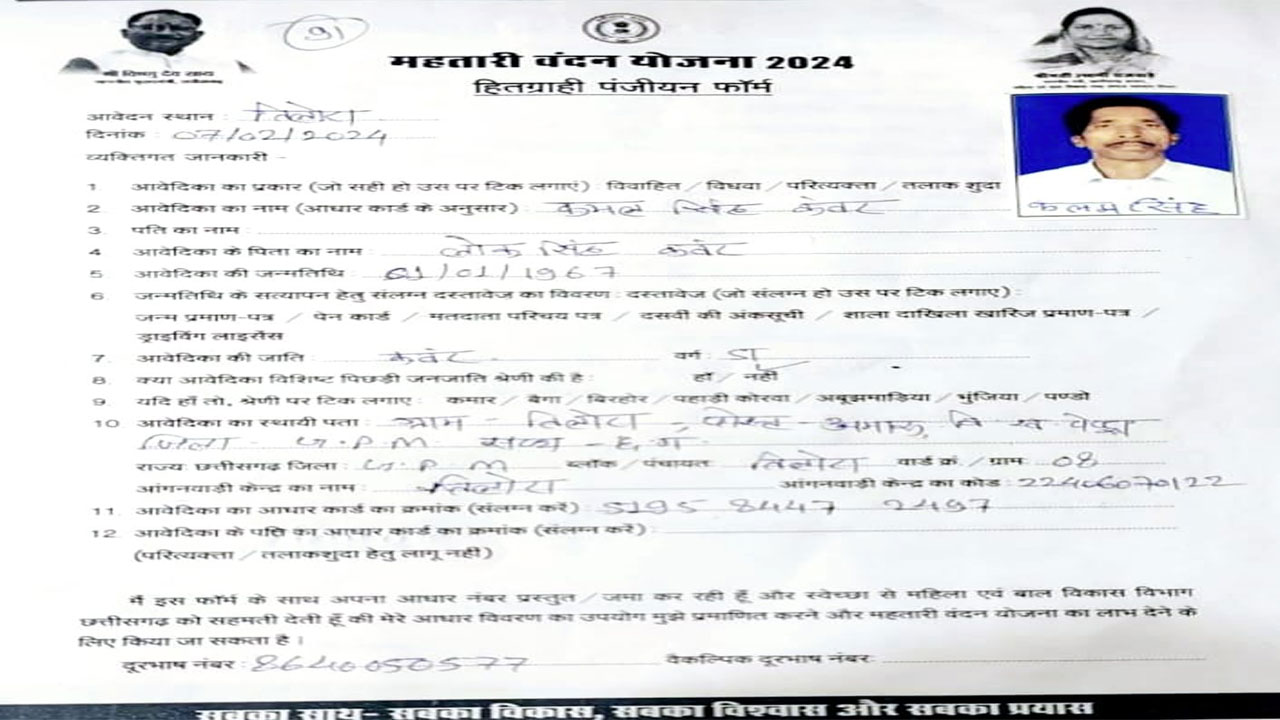 91
श्री विष्णु देव साय
महतारी वंदन योजना 2024
हितग्राही पंजीयन फॉर्म
आवेदन स्थान : तिलोरा
दिनांक : 07/02/2024
व्यक्तिगत जानकारी -
1. आवेदिका का प्रकार (जो सही हो उस पर टिक लगाएं) : विवाहित / विधवा / परित्यक्ता / तलाक शुदा
कलम सिंह
2. आवेदिका का नाम (आधार कार्ड के अनुसार) : कमल सिंह केवट
3. पति का नाम :
4. आवेदिका के पिता का नाम : लोक सिंह केवट
5. आवेदिका की जन्मतिथि : 01/01/1967
6. जन्मतिथि के सत्यापन हेतु संलग्न दस्तावेज का विवरण : दस्तावेज (जो संलग्न हो उस पर टिक लगाए) :
जन्म प्रमाण-पत्र / पेन कार्ड / मतदाता परिचय पत्र / दसवीं की अंकसूची / शाला दाखिला खारिज प्रमाण-पत्र /
ड्राइविंग लाइसेंस
7. आवेदिका की जाति : केवट वर्ग :
8. क्या आवेदिका विशिष्ट पिछड़ी जनजाति श्रेणी की है : हाँ / नहीं
9. यदि हाँ तो, श्रेणी पर टिक लगाए : कमार / बैगा / बिरहोर / पहाड़ी कोरवा / अबूझमाड़िया / भुंजिया / पण्डो
10. आवेदिका का स्थायी पता : ग्राम - तिलोरा, पोस्ट -
जिला - G.P.M राज्य - छ.ग
राज्य छत्तीसगढ़ जिला : G.P.M ब्लॉक / पंचायत तिलोरा वार्ड क्रं. / ग्राम 08
आंगनवाड़ी केन्द्र का नाम : तिलोरा आंगनवाड़ी केन्द्र का कोड : 22406070122
11. आवेदिका का आधार कार्ड का क्रमांक (संलग्न करें) : 5195 8447 2497
12. आवेदिका के पति का आधार कार्ड का क्रमांक (संलग्न करें) :
(परित्यक्ता / तलाकशुदा हेतु लागू नहीं)
मैं इस फॉर्म के साथ अपना आधार नंबर प्रस्तुत / जमा कर रही हूँ और स्वेच्छा से महिला एवं बाल विकास विभाग
छत्तीसगढ़ को सहमती देती हूँ की मेरे आधार विवरण का उपयोग मुझे प्रमाणित करने और महतारी वंदन योजना का लाभ देने के
लिए किया जा सकता है।
दूरभाष नंबर : 8640050577 वैकल्पिक दूरभाष नंबर:
सबका साथ- सबका विकास, सबका विश्वास और सबका प्रयास